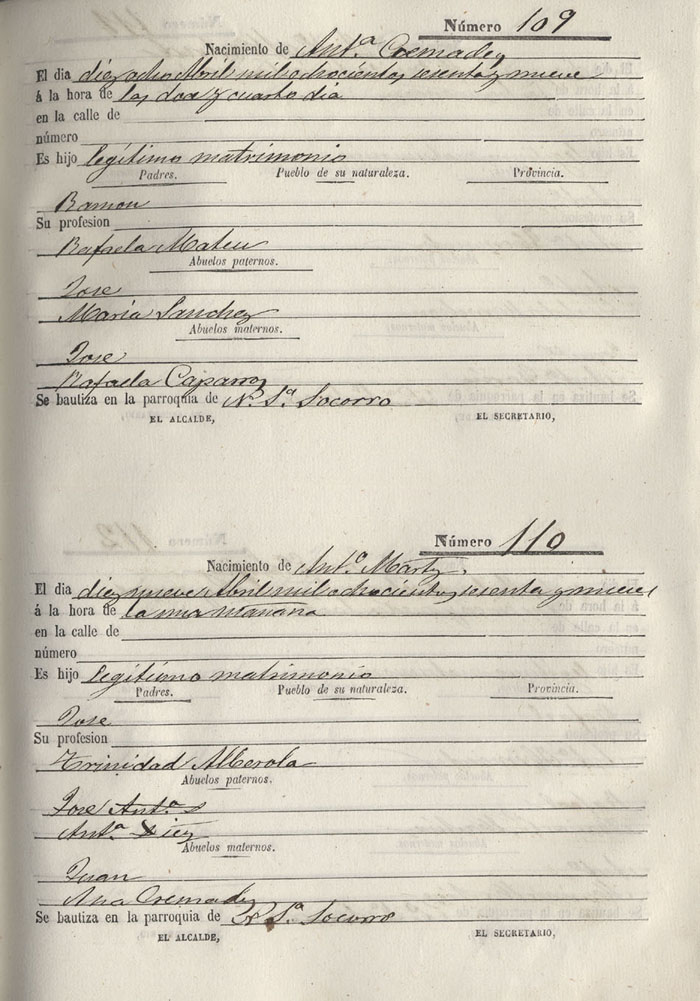 Número 109
Nacimiento de Antª Cremades
El dia diez ocho Abril mil ochocientos sesenta y nueve
á la hora de las doce y cuarto dia
en la calle de
número
Es hijo legítimo matrimonio
Padres. Pueblo de su naturaleza. Provincia.
Ramon
Su profesion
Rafaela Mateu
Abuelos paternos.
Jose
Maria Sanchez
Abuelos maternos.
Jose
Rafaela Caparros
Se bautiza en la parroquia de Nª Sª Socorro
EL ALCALDE, EL SECRETARIO,
Número 110
Nacimiento de Antª Martz.
El dia diez nueve Abril mil ochocientos sesenta y nueve
á la hora de la una mañana
en la calle de
número
Es hijo legítimo matrimonio
Padres. Pueblo de su naturaleza. Provincia.
Jose
Su profesion
Trinidad Alberola
Abuelos paternos.
Jose Antº
Antª Diez
Abuelos maternos.
Juan
Ana Cremades
Se bautiza en la parroquia de Nª Sª Socorro
EL ALCALDE, EL SECRETARIO,